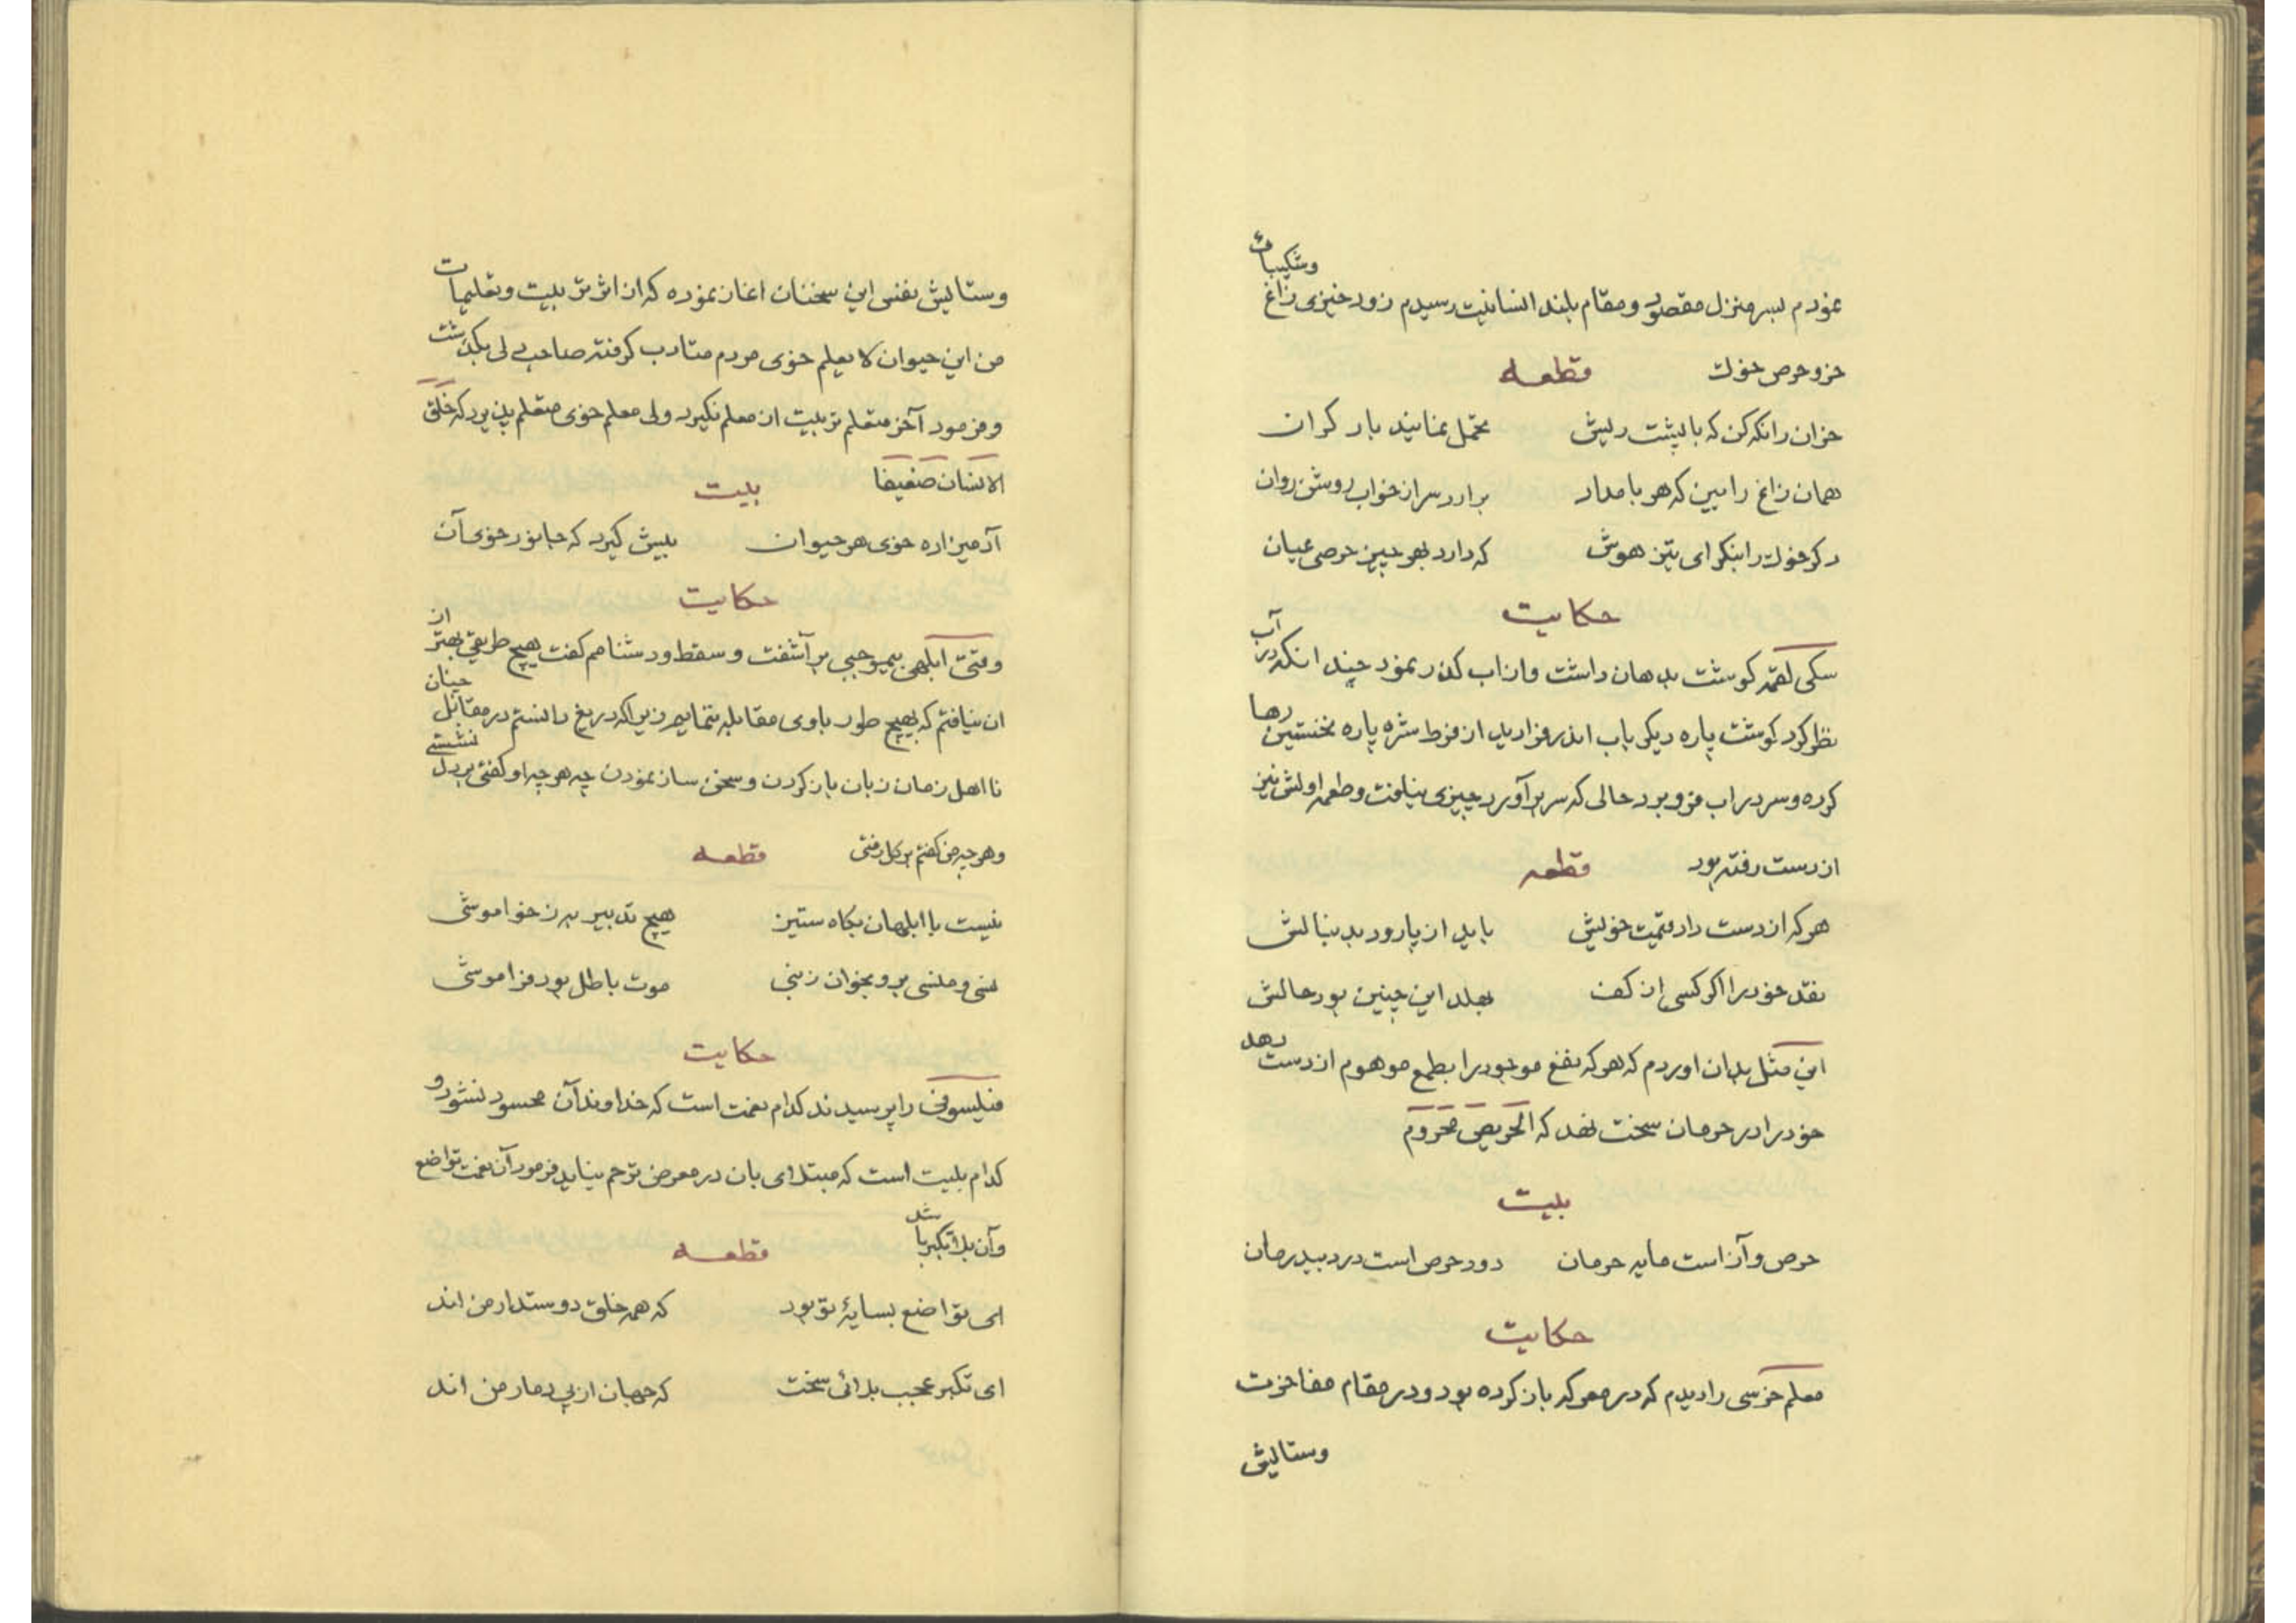 نمودم بسر منزل مقصود و مقام بلند انسانیت رسیدم زود خیزی زاغ وشکیبائ
خر و حرص خوك
قطعه
خران را نکه کن که با پشت ریش تحمل نمایند بار کران
همان زاغ را بین که هر بامداد برارد سر از خواب روشن روان
دکر خوك را بنکر ای تیز هوش که دارد بهر چیز حرصی عیان
حکایت
سکی لقمه کوشت بدهان داشت و از اب کذر نمود چند انکه در آب
نظر کرد کوشت پاره دیکر باب اندر فزا دید از فرط شره پاره نخستین رها
کرده و سر در اب فرو برد حالی که سر بر آورد چیزی نیافت و طعمه اولش نیز
از دست رفته بود
قطعه
هر که از دست داد قیمت خویش باید از پا رود بدنبالش
نقد خود را اکر کسی از کف بهلد این چنین بود حالش
این مثل بدان اوردم که هر که نفع موجود را بطمع موهوم از دست دهد
خود را در حرمان سخت نهد که الحریص محروم
بیت
حرص و آز است مایه حرمان دود حرص است درد بیدرمان
حکایت
معلم خرسی را دیدم که در معرکه باز کرده بود و در مقام مفاخرت
وستایش
وستایش نفس این سخنان اغاز نموده که از اثر تربیت و تعلیمات
من این حیوان لا یعلم خوی مردم متادب کرفته صاحب دلی بکذشت
و فرمود آخر متعلم تربیت از معلم نکیرد ولی معلم خوی متعلم پذیرد که خلق
الانسان ضعیفا
بیت
آدمیزاده خوی هر حیوان بیش کیرد که جانور خوی آن
حکایت
وقتی ابلهی بیموجبی بر آشفت و سقط و دشنامم کفت هیچ طریقی بهتر از
ان نیافتم که بهیچ طور باوی مقابله ننمایم زیراکه دریغ دانستم در مقابل چنان
نا اهل زمان زبان باز کردن و سخن ساز نمودن چه هر چه او کفتی بر دل ننشستی
و هر چه من کفتم بر کل رفتی
قطعه
نیست با ابلهان بکاه ستیز هیچ تدبیر به ز خواموشی
نسی و منسی برو بخوان زنبی موت باطل بود فراموشی
حکایت
فیلسوفی را پرسیدند کدام نعمت است که خداوند آن محسود نشود و
کدام بلیت است که مبتلای بان در معرض ترحم نیاید فرمود آن نعمت تواضع
و آن بلا تکبر باشد
قطعه
ای تواضع بسایهٔ تو بود که همه خلق دوستدار من اند
ای تکبر عجب بلائی سخت که جهان از پی دمار من اند